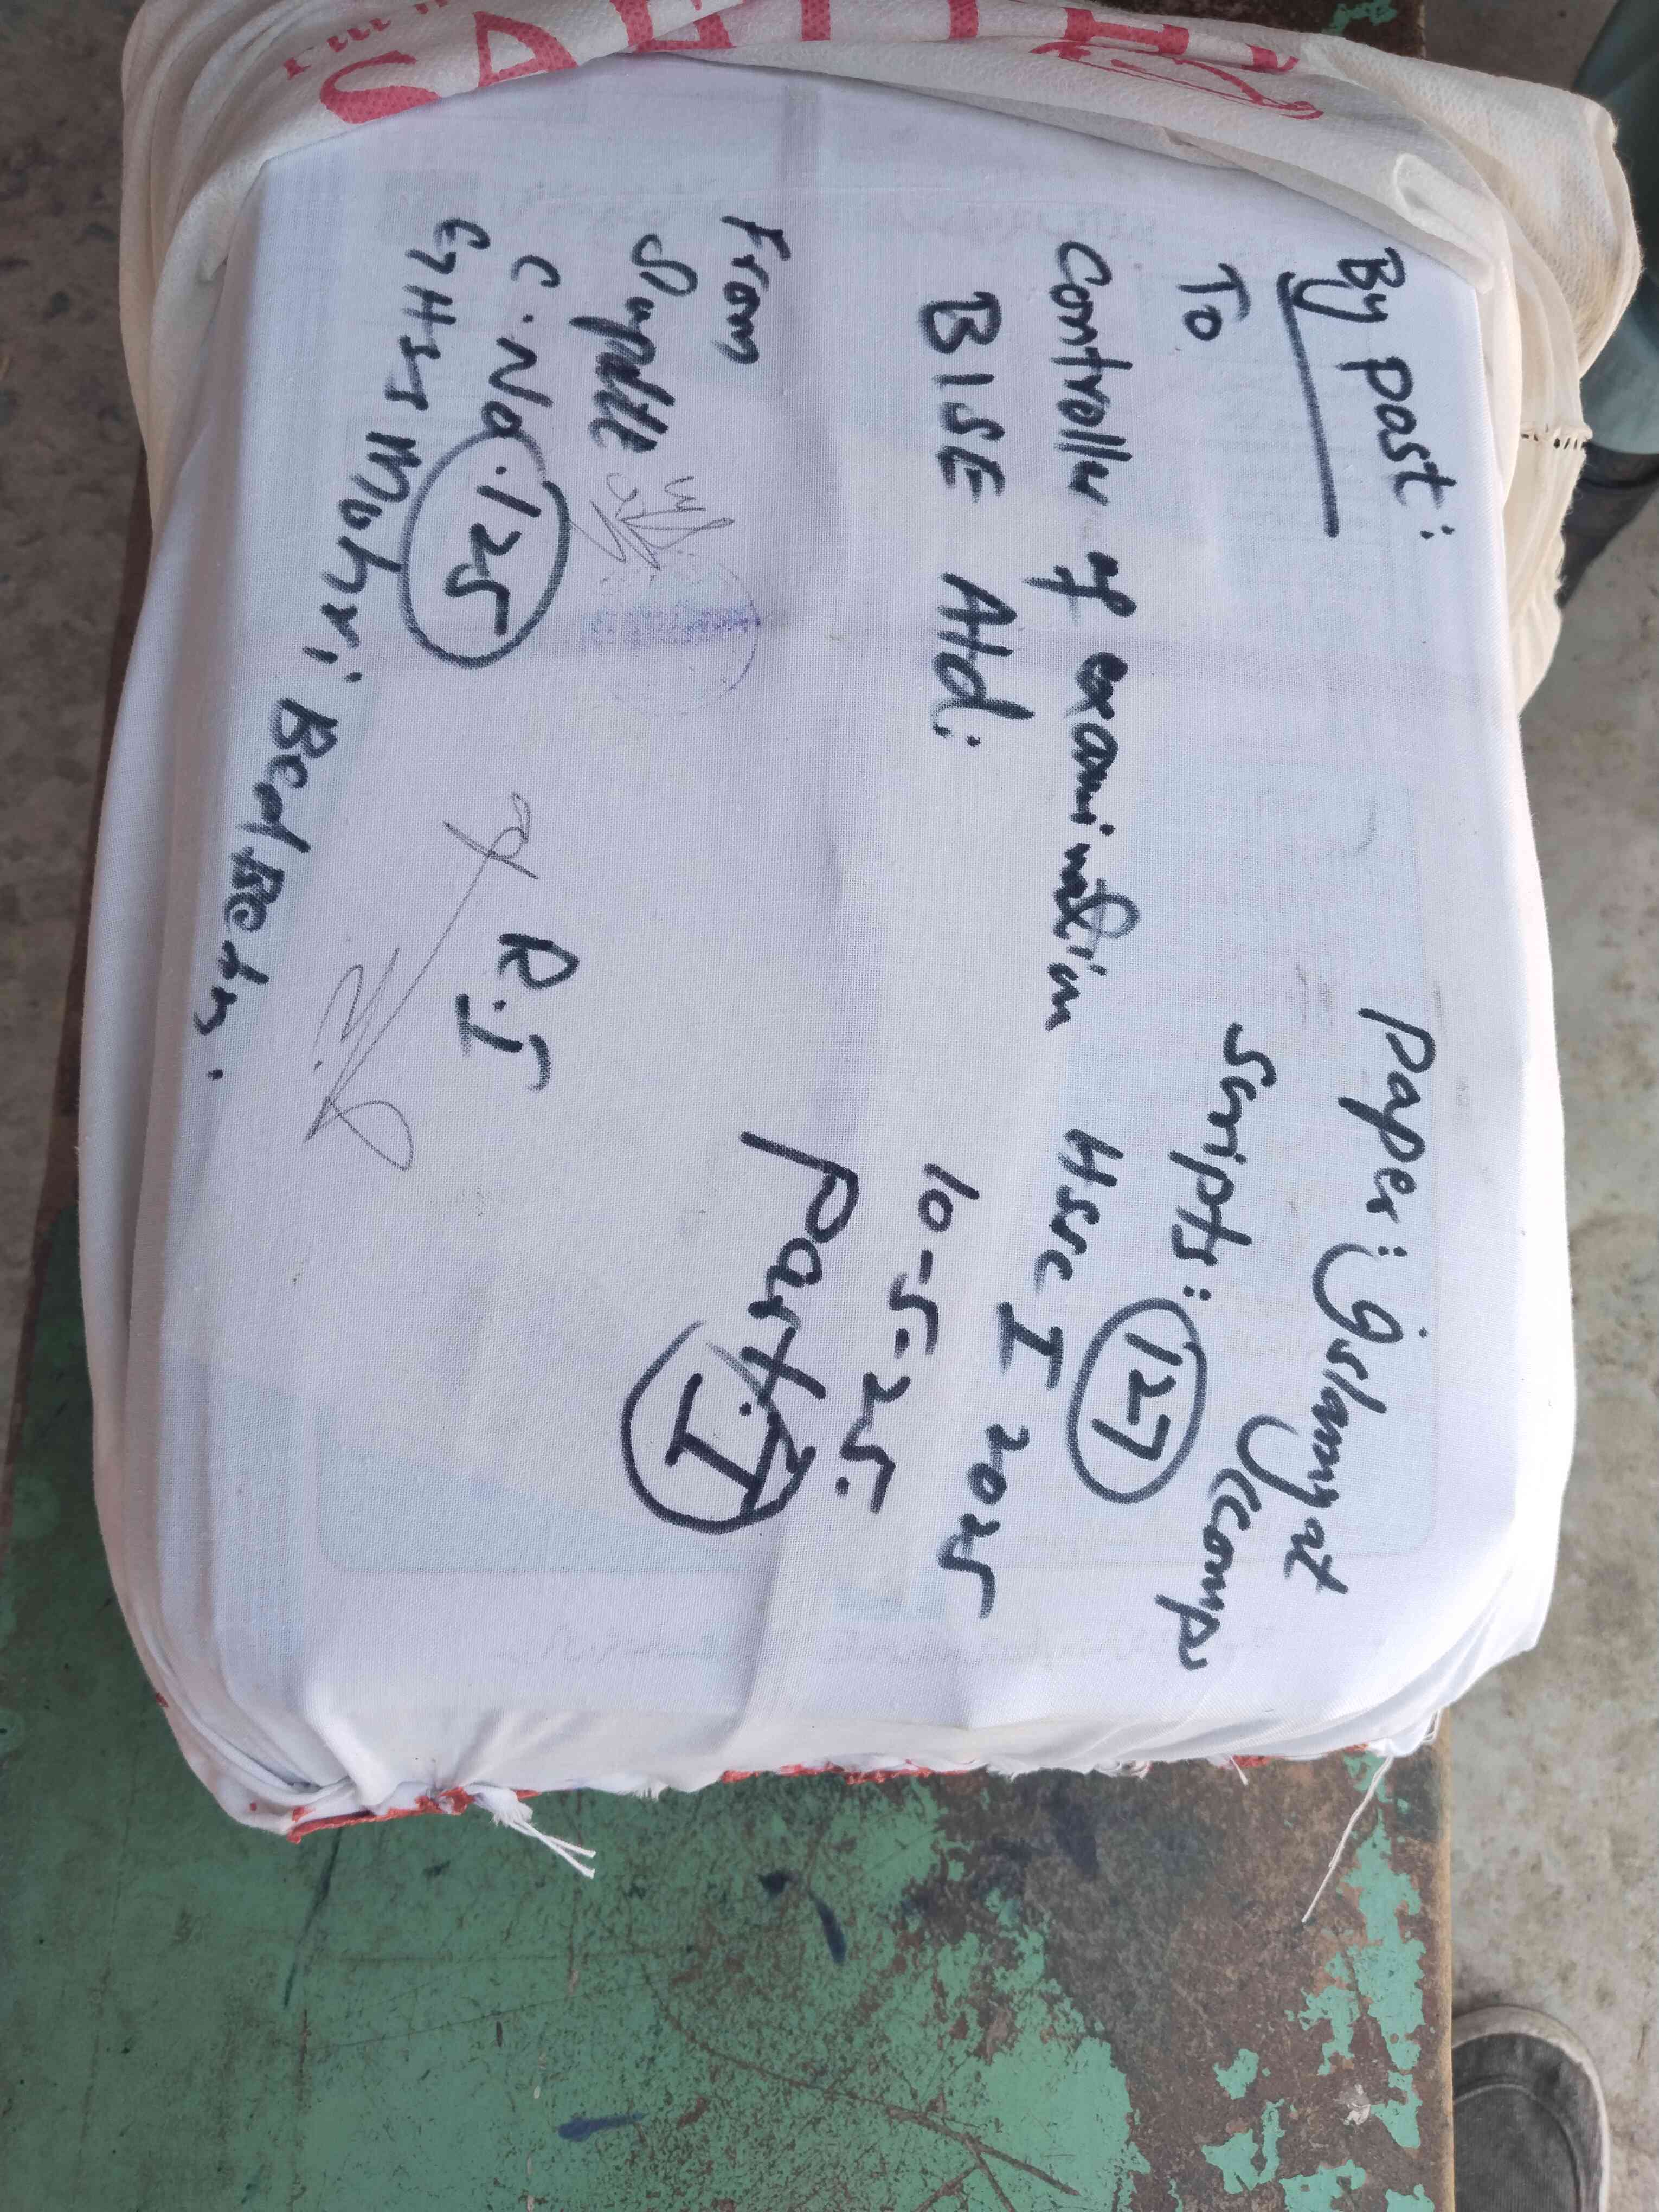 By post:
To
Controller of examination
BISE Atd:
Paper: Islamyat
(Comp
Scripts: 127
HSSC I 2025
10-5-25.
Part: I
From
Supdtt
C.No. 125
GHSS Mohri
R.I